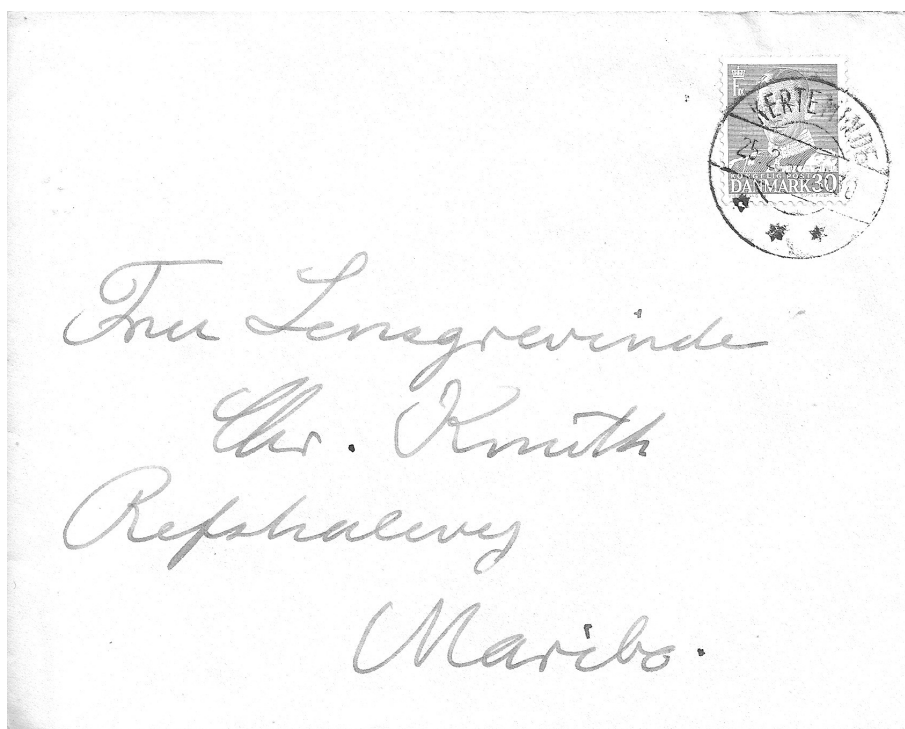 KERTEMINDE
25.2.
KONGELIG POST
DANMARK 30
Fru Lensgrevinde
Chr. Knuth
Refshalevej
Maribo.